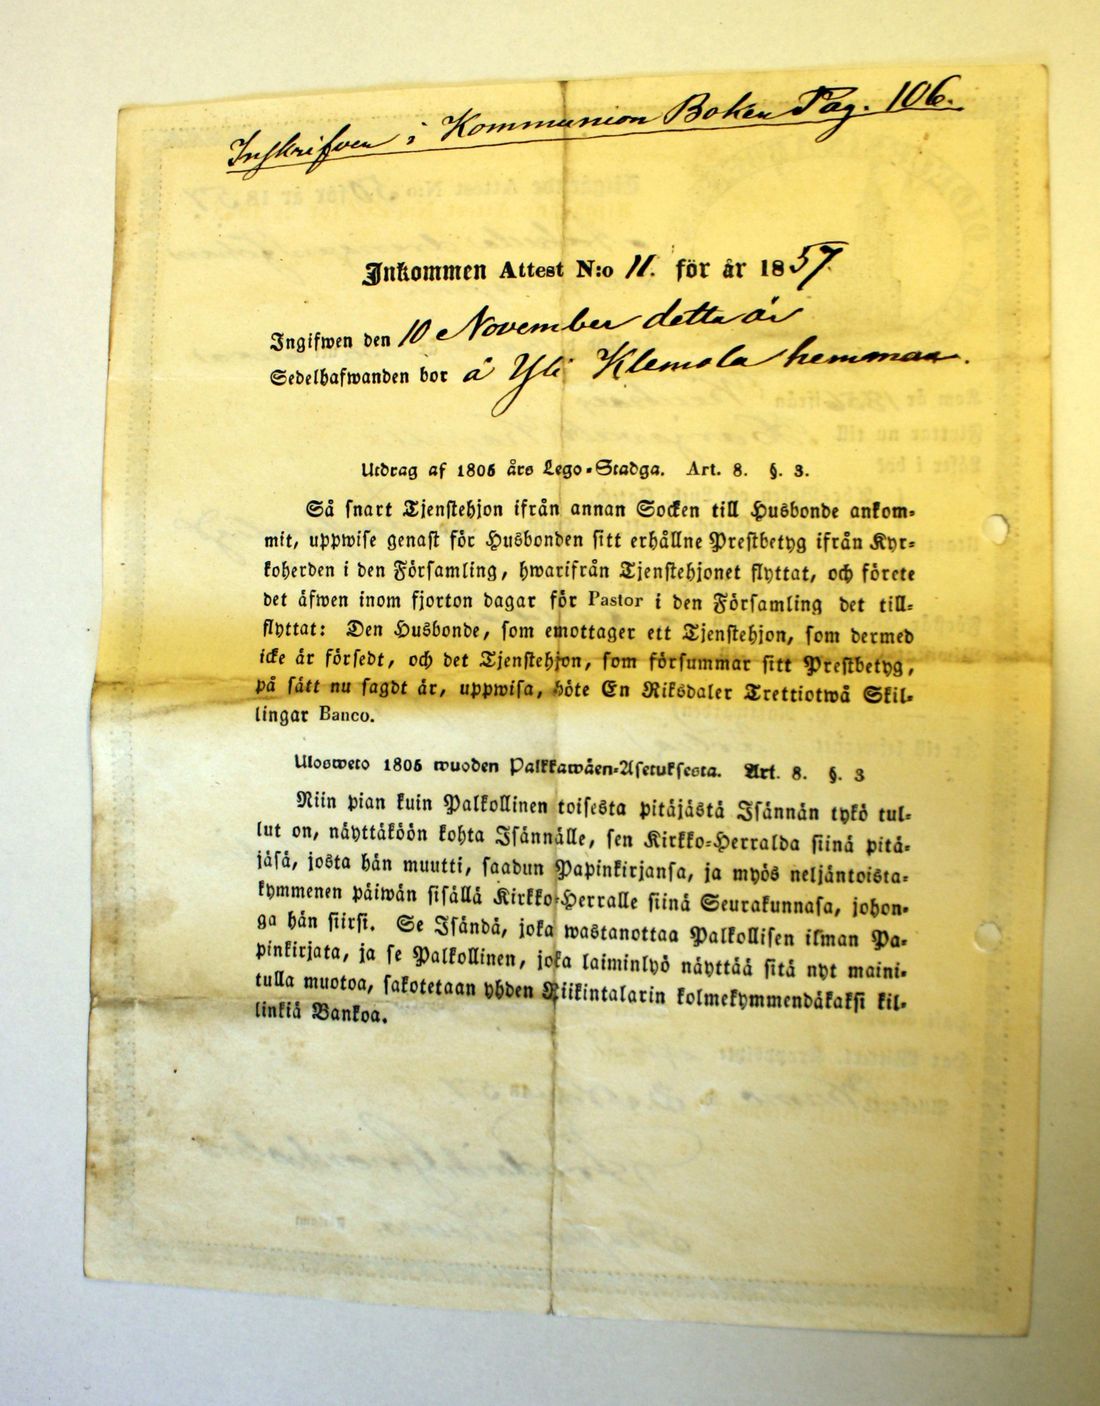 Inskrifven i Kommunion Boken Pag. 106.
Inkommen Attest N:o 11. för år 1857.
Ingifwen den 10 November detta år
Sedelhafwanden bor å Yli Klemola hemman.
Utdrag af 1805 års Lego-Stadga. Art. 8. §. 3.
Så snart Tjenstehjon ifrån annan Socken till Husbonde ankom-
mit, uppwise genast för Husbonden sitt erhållne Prestbetyg ifrån Kyr-
koherden i den Församling, hwarifrån Tjenstehjonet flyttat, och förete
det äfwen inom fjorton dagar för Pastor i den Församling det till-
flyttat: Den Husbonde, som emottager ett Tjenstehjon, som dermed
icke är försedt, och det Tjenstehjon, som försummar sitt Prestbetyg,
på sätt nu sagdt är, uppwisa, böte En Riksdaler Trettiotwå Skil-
lingar Banco.
Ulosweto 1805 wuoden Palkkawäen-Asetuksesta. Art. 8. §. 3
Niin pian kuin Palkollinen toisesta pitäjästä Isännän tykö tul-
lut on, näyttäköön kohta Isännälle, sen Kirkko-Herralda siinä pitä-
jäsä, josta hän muutti, saadun Papinkirjansa, ja myös neljäntoista-
kymmenen päiwän sisällä Kirkko-Herralle siinä Seurakunnasa, johon-
ga hän siirsi. Se Isändä, joka wastanottaa Palkollisen ilman Pa-
pinkirjata, ja se Palkollinen, joka laiminlyö näyttää sitä nyt maini-
tulla muotoa, sakotetaan yhden Riikintalarin kolmekymmendäkaksi kil-
linkiä Bankoa.